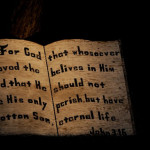 For God
oved the
d, that He
His only
otten Son,
that whosoever
belives in Him
should not
perish, but have
eternal life.
John 3:16